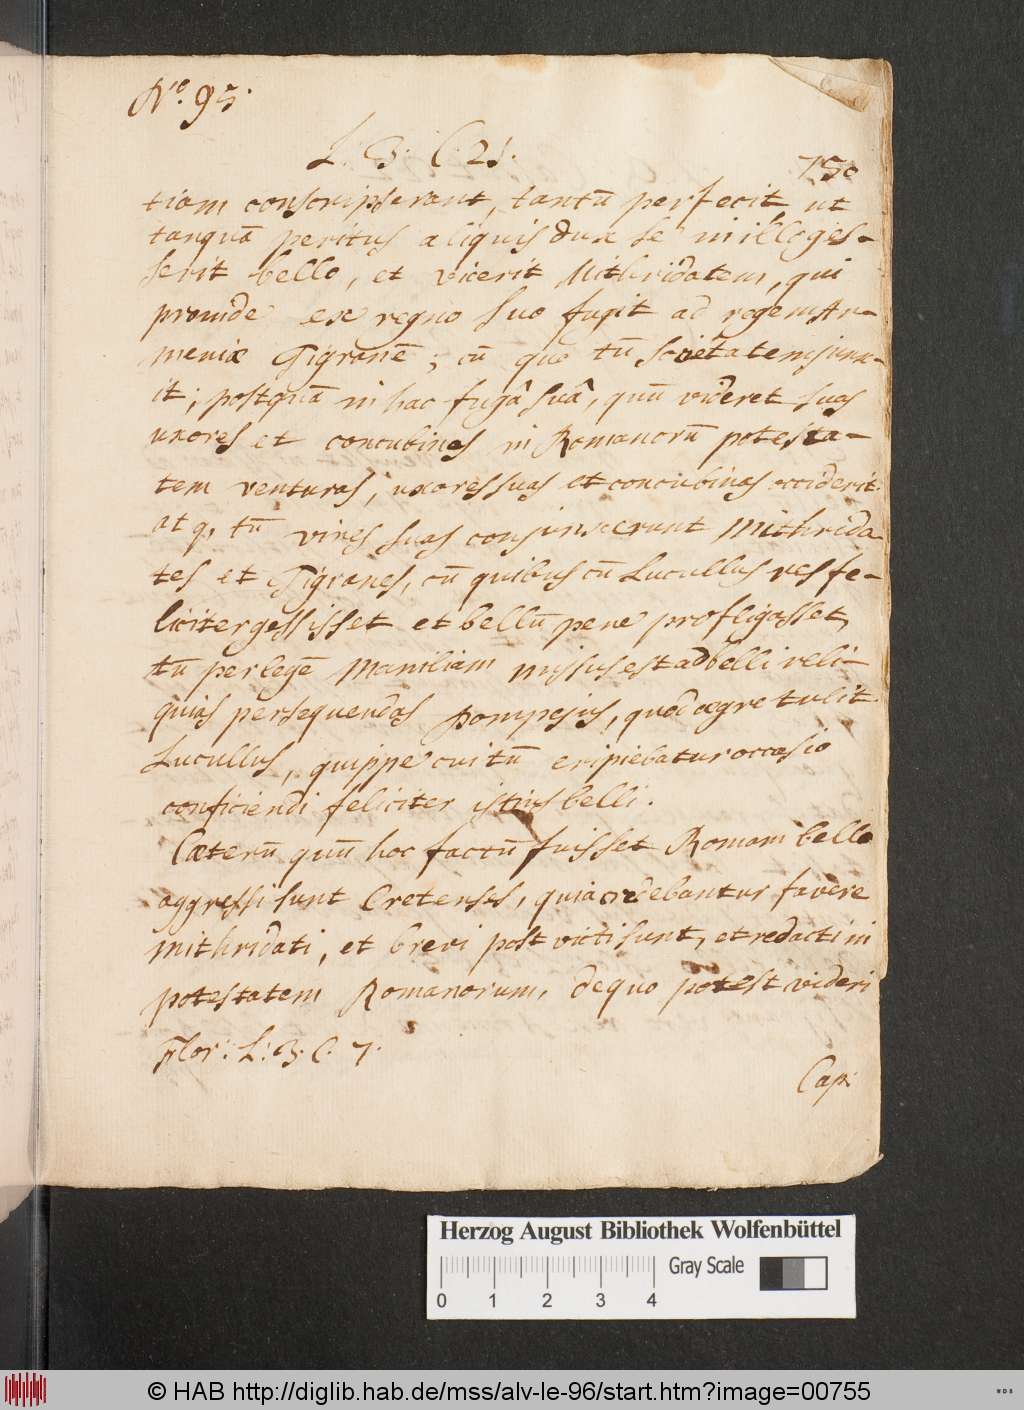 No. 95.
L. 3. C. 21.
750
tiam conscripserant, tantū perfecit ut
tanquā peritus aliquis dux se in illo ges-
serit bello, et vicerit Mithridatem, qui
proinde ex regno suo fugit ad regem Ar-
meniæ Tigranē; cū quo tū societatem junx-
it; postquā in hac fugâ suâ, quū videret suas
uxores et concubines in Romanorū potesta-
tem venturas, uxores suas et concubinas occiderit.
atq, tū vires suas conjunxerunt Mithrida-
tes et Tigranes, cū quibus cū Lucullus res fe-
liciter gessisset et bellū pene profligasset,
tū per legē Maniliam missus est ad belli reli-
quias persequendas Pompejus, quod ægre tulit
Lucullus, quippe cui tū eripiebatur occasio
conficiendi feliciter istius belli.
Cæterū quū hoc factū fuisset Romam bello
aggressi sunt Cretenses, quia credebantur favere
Mithridati, et brevi post victi sunt, et redacti in
potestatem Romanorum, de quo potest videri
Flor: L: 3. C. 7.
Cap:
Herzog August Bibliothek Wolfenbüttel
Gray Scale
0 1 2 3 4
© HAB http://diglib.hab.de/mss/alv-le-96/start.htm?image=00755